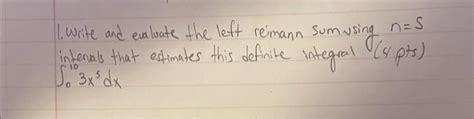 1. Write and evaluate the left reimann sum using n=5
intervals that estimates this definite integral (4 pts)
∫₀¹⁰ 3x⁵ dx